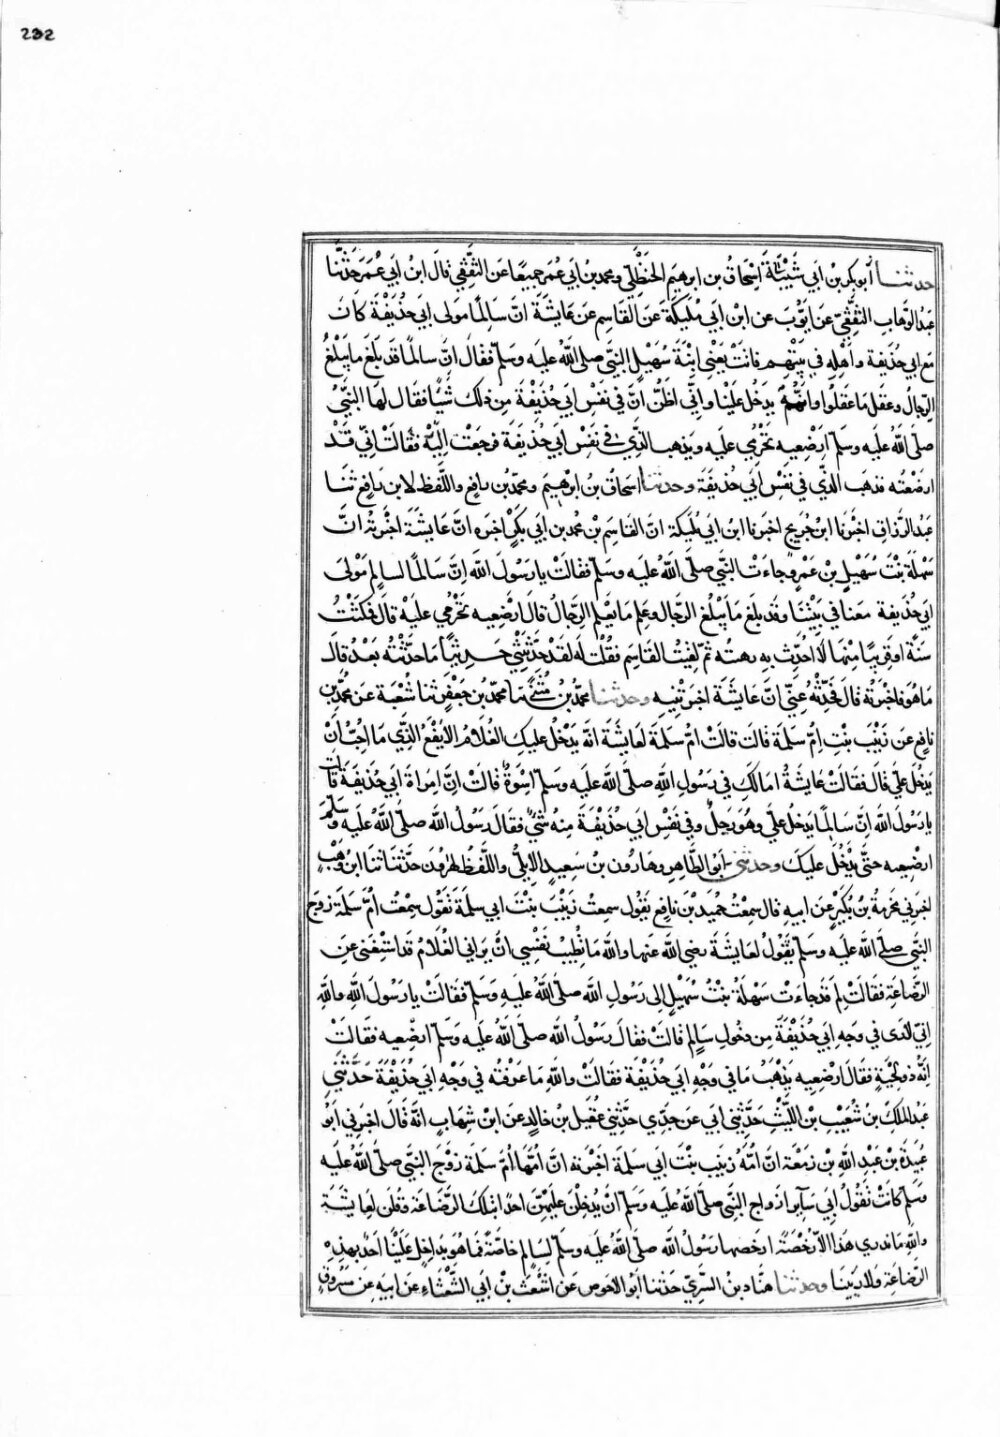 232
حدثنا أبو بكر بن أبي شَيْبَةَ اِسْحَاقُ بن ابرهيم الحَنظَلِّي ومحمد بن ابي عُمَر جميعًا عن الثَّقَفِي قال ابنُ ابي عُمَرَ حَدَّثنا
عبدُ الوَهابِ الثقَفيّ عن ايّوُبَ عن ابن ابي مُلَيكَةَ عنَ القاسِم عَن عَايشَةَ انَّ سَالِمًا مولى ابي حُذَيفَةَ كانَ
مَع ابي حُذَيفة وأَهْلِهِ في بَيْتِهِم فاتتْ يَعْنِي ابْنَةَ سُهَيْلٍ النبَّي صلى اللَّهُ عليه وسَلَم فقال اِنَّ سالمًا قَد بَلَغ ما يَبْلُغُ
الرِّجال وعقَل ما عَقَلُوا وانَّهُ يَدخُل عَلَيْنا واِنِّي اظُنّ انَّ في نَفْس ابي حُذَيْفَةَ مِن ذلك شيًا فقال لهَا النبَّيُ
صلى اللَّهُ عليه وسَلم اَرْضِعِيهِ تحَرُمي عليه ويَذهب الذَّي في نفَس ابي حُذَيفَة فرجَعَتْ اليَّه فقالَتْ اِنّي قَدْ
ارضَعْتُه فذهَب الذَّي في نفسِ ابي حُذَيفَة وحدثنا اسحاق بن ابرهيمَ ومحمّد بن رافع واللَّفظ لابن رَافع ثنا
عبد الرزاق اخبرَنا ابنُ جُريج اخبرنا ابنُ ابي مُلَيكة انَّ القاسِم بْنَ محمد بن ابي بَكْرٍ اخبَره انَّ عَايشَةَ اخبَرتهُ انَّ
سَهْلَةَ بِنْتَ سُهَيْلِ بن عَمْروٍ جاءَت النبَّي صلى اللَّهُ عليه وسَلم فقالتْ يا رسُولَ اللَّه اِنَّ سَالمًا لسالمٍ مَوْلىَ
ابي حُذَيفة معنا في بَيْتنا وقد بلَغ ما يَبْلُغ الرَّجال وعَلِم ما يَعْلم الرِّجالُ قالَ اَرْضِعيه تَحْرُمي عليْه قالَ فمكَثْتُ
سَنَةً اوقَريبًا مِنْها لا اُحَدِّث بِه رهبتُه ثُمّ لقِيتُ القَاسِم فقُلْتُ لَه لقدْ حَدَّثْتَنِي حديثًا ما حَدَّثْتُه بَعْدُ قالَ
مَا هُوَ فاخبَرتُه قالَ فحَدِّثْهُ عَنِّي انَّ عَايشَةَ اخبرَتْنِيه وحدثنا محمّد بن مُثَنىَّ ثنا محمّد بن جَعْفَر ثنا شُعْبَة عَن حُمَيْدِ بن
نافِع عن زَيْنَب بِنْتِ امّ سَلَمة قالَت قالتْ امُّ سَلَمة لعَايشَةَ انّه يَدْخُل عليكِ الغُلامُ الاَيْفَعُ الذَّي مَا اُحِبُّ اَنْ
يَدْخُل عَلَيَّ قال فقالَتْ عَايشَةُ امَا لَكِ في رسُولِ اللَّه صلى اللَّهُ عليه وسَلم اُسْوَةٌ قالَتْ اِنَّ امراةَ ابي حُذَيفَةَ قالت
يا رَسُولَ اللَّه اِنَّ سَالِمًا يَدخُل عليَّ وهُو رَجلٌ وفي نفْس ابي حُذَيْفَةَ مِنه شيٌ فقالَ رسُولُ اللَّه صلى اللَّهُ عليه وسَلَّم
ارضِعِيه حتَّى يَدْخُل عليكَ وحدثني ابو الطَّاهِر وهارُون بن سَعِيدٍ الاِيليُّ واللَّفظ لِهٰرُونَ حدّثنا ثنا ابنُ وَهْبٍ
اخبرني مخرمةُ بنُ بُكَيْرٍ عَن ابِيهِ قال سَمِعْتُ حُميَدْ بْنَ نافِع يَقُول سمِعتُ زَيْنَبَ بنتَ ابي سلَمَة تَقُول سمِعْتُ امُّ سَلَمَة زوجَ
النبَّي صلى اللَّه عليه وسَلم تَقُولُ لعَايشَةَ رضي اللَّه عنها واللَّه مَا تَطِيبُ نَفْسِي انْ يرَاني الغُلاَمُ قد استَغْنى عَنِ
الرَّضاعَة فقَالَتْ لِم قَد جاءَتْ سَهْلَةُ بِنْتُ سُهَيْلٍ اِلى رسُولِ اللَّه صلى اللَّهُ عليهِ وسَلم فقَالَتْ يا رَسُولَ اللَّه واللَّهِ
اِنيّ لاَرَى في وَجهِ ابي حُذَيْفَةَ مِن دخُولِ سَالمٍ قالَتْ فقالَ رسُولُ اللَّه صلى اللَّهُ عليه وسَلم ارضِعِيه فقالَتْ
اِنَّهُ ذو لِحْيَةٍ فقالَ ارْضِعِيه يَذْهَبُ مَا في وَجْهِ ابي حُذَيْفَة فقالَتْ واللَّهِ مَا عَرَفْتُه في وَجْهِ ابي حُذَيْفَةَ حَدَّثَنِي
عبد الملكُ بن شُعَيْبِ بن اللَّيْثِ حَدَّثَنِي ابي عَن جَدّي حدَّثَنِي عُقَيل بن خالدٍ عَن ابنْ شهَابٍ انَّه قالَ اخبرَني ابَو
عُبَيدةَ بن عَبْدِ اللَّهِ بن زَمْعَة انَّ اُمَّه زَيْنب بنْتَ ابي سَلَمَة اخبرَته انَّ اُمَّها اُمَّ سَلمة زَوْجَ النبّي صلى اللَّهُ عليه
وسَلم كانَتْ تَقُولُ ابَي سَايرُ ازواج النبَّي صلى اللَّهُ عليه وسَلم انْ يُدْخِلْنَ عليهِنّ احَدًا بتِلْكَ الرَّضَاعَة وقُلنَ لعايشَة
واللَّهِ مَا نَرى هذَا الاّ رُخْصَةً ارخصَها رسُولُ اللَّه صلى اللَّهُ عليه وسَلم لِسَالمٍ خاصَّةً فما هُو بداخِلٍ عَلَيْنَا احَدٌ بهذِهِ
الرَّضَاعَة ولا رَايِينا وحدثنا هنّاد بنُ السَّرِيّ حَدثنا ابَوُ الاحوَص عَن اشعَث بْنِ ابي الشَّعْثَاءِ عَن ابيه عَن مَسْروُقٍ